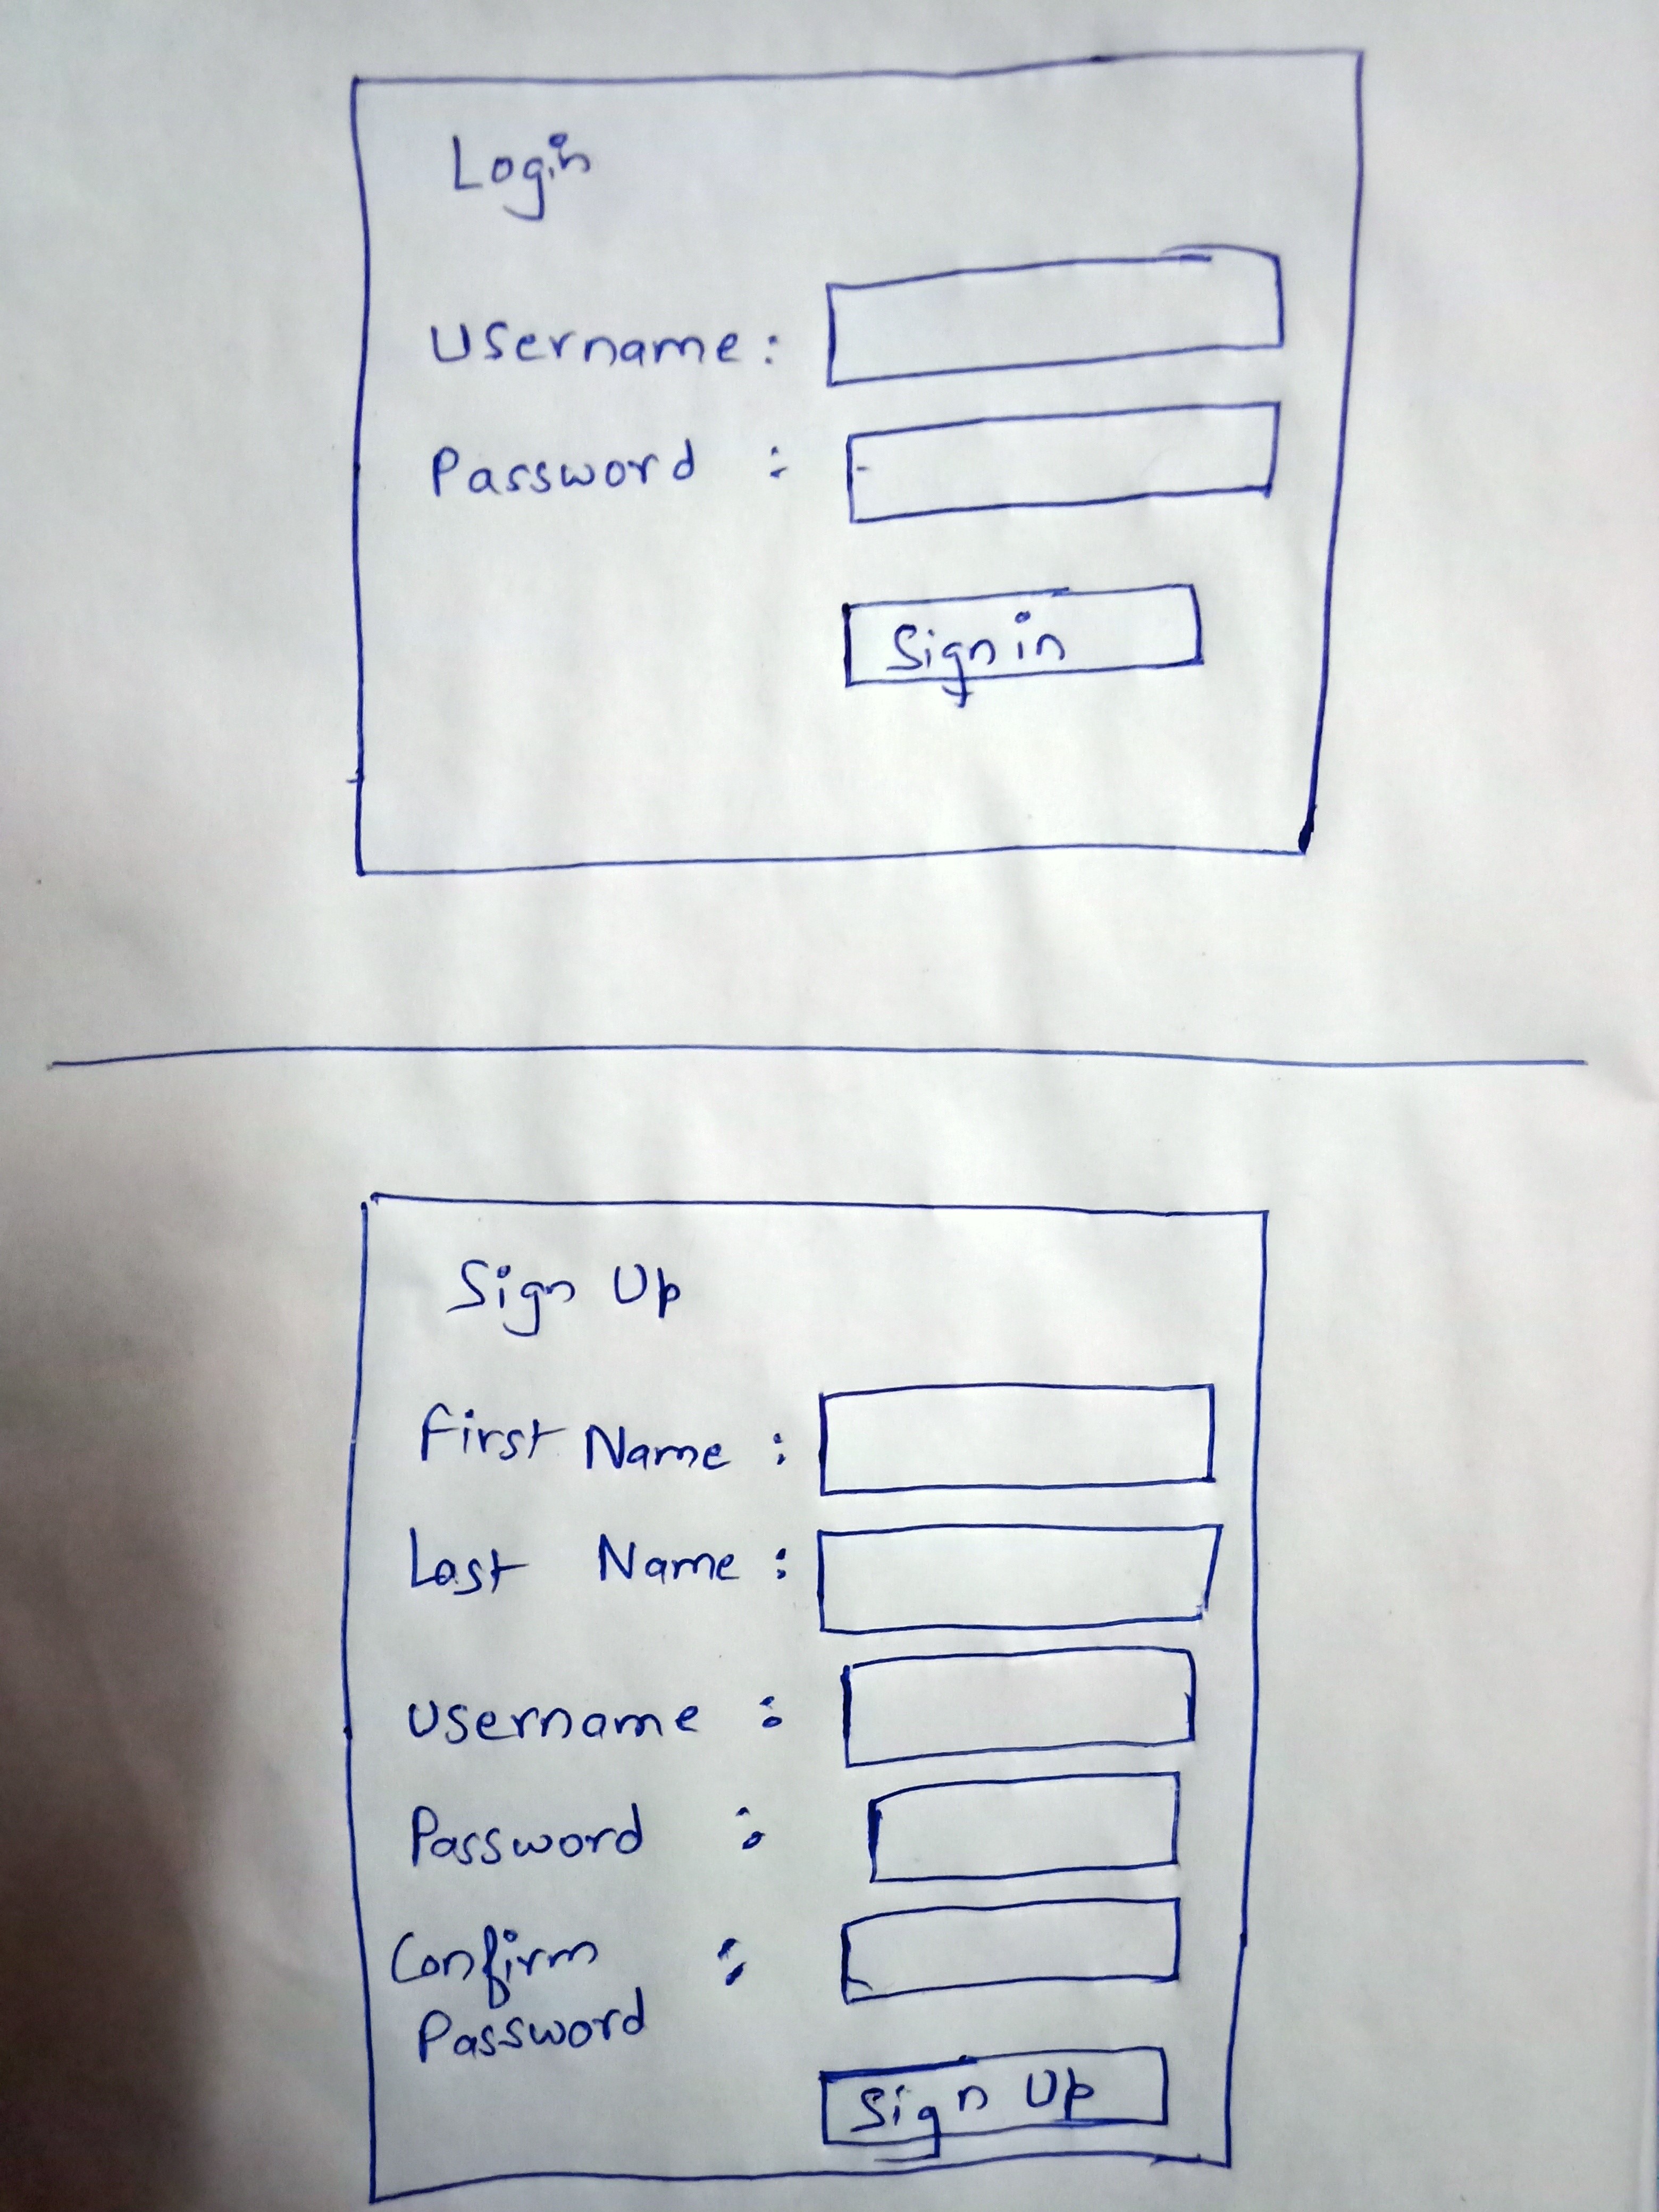 Login
Username :
Password :
Sign in
Sign Up
First Name :
Last Name :
Username :
Password :
Confirm :
Password
Sign Up